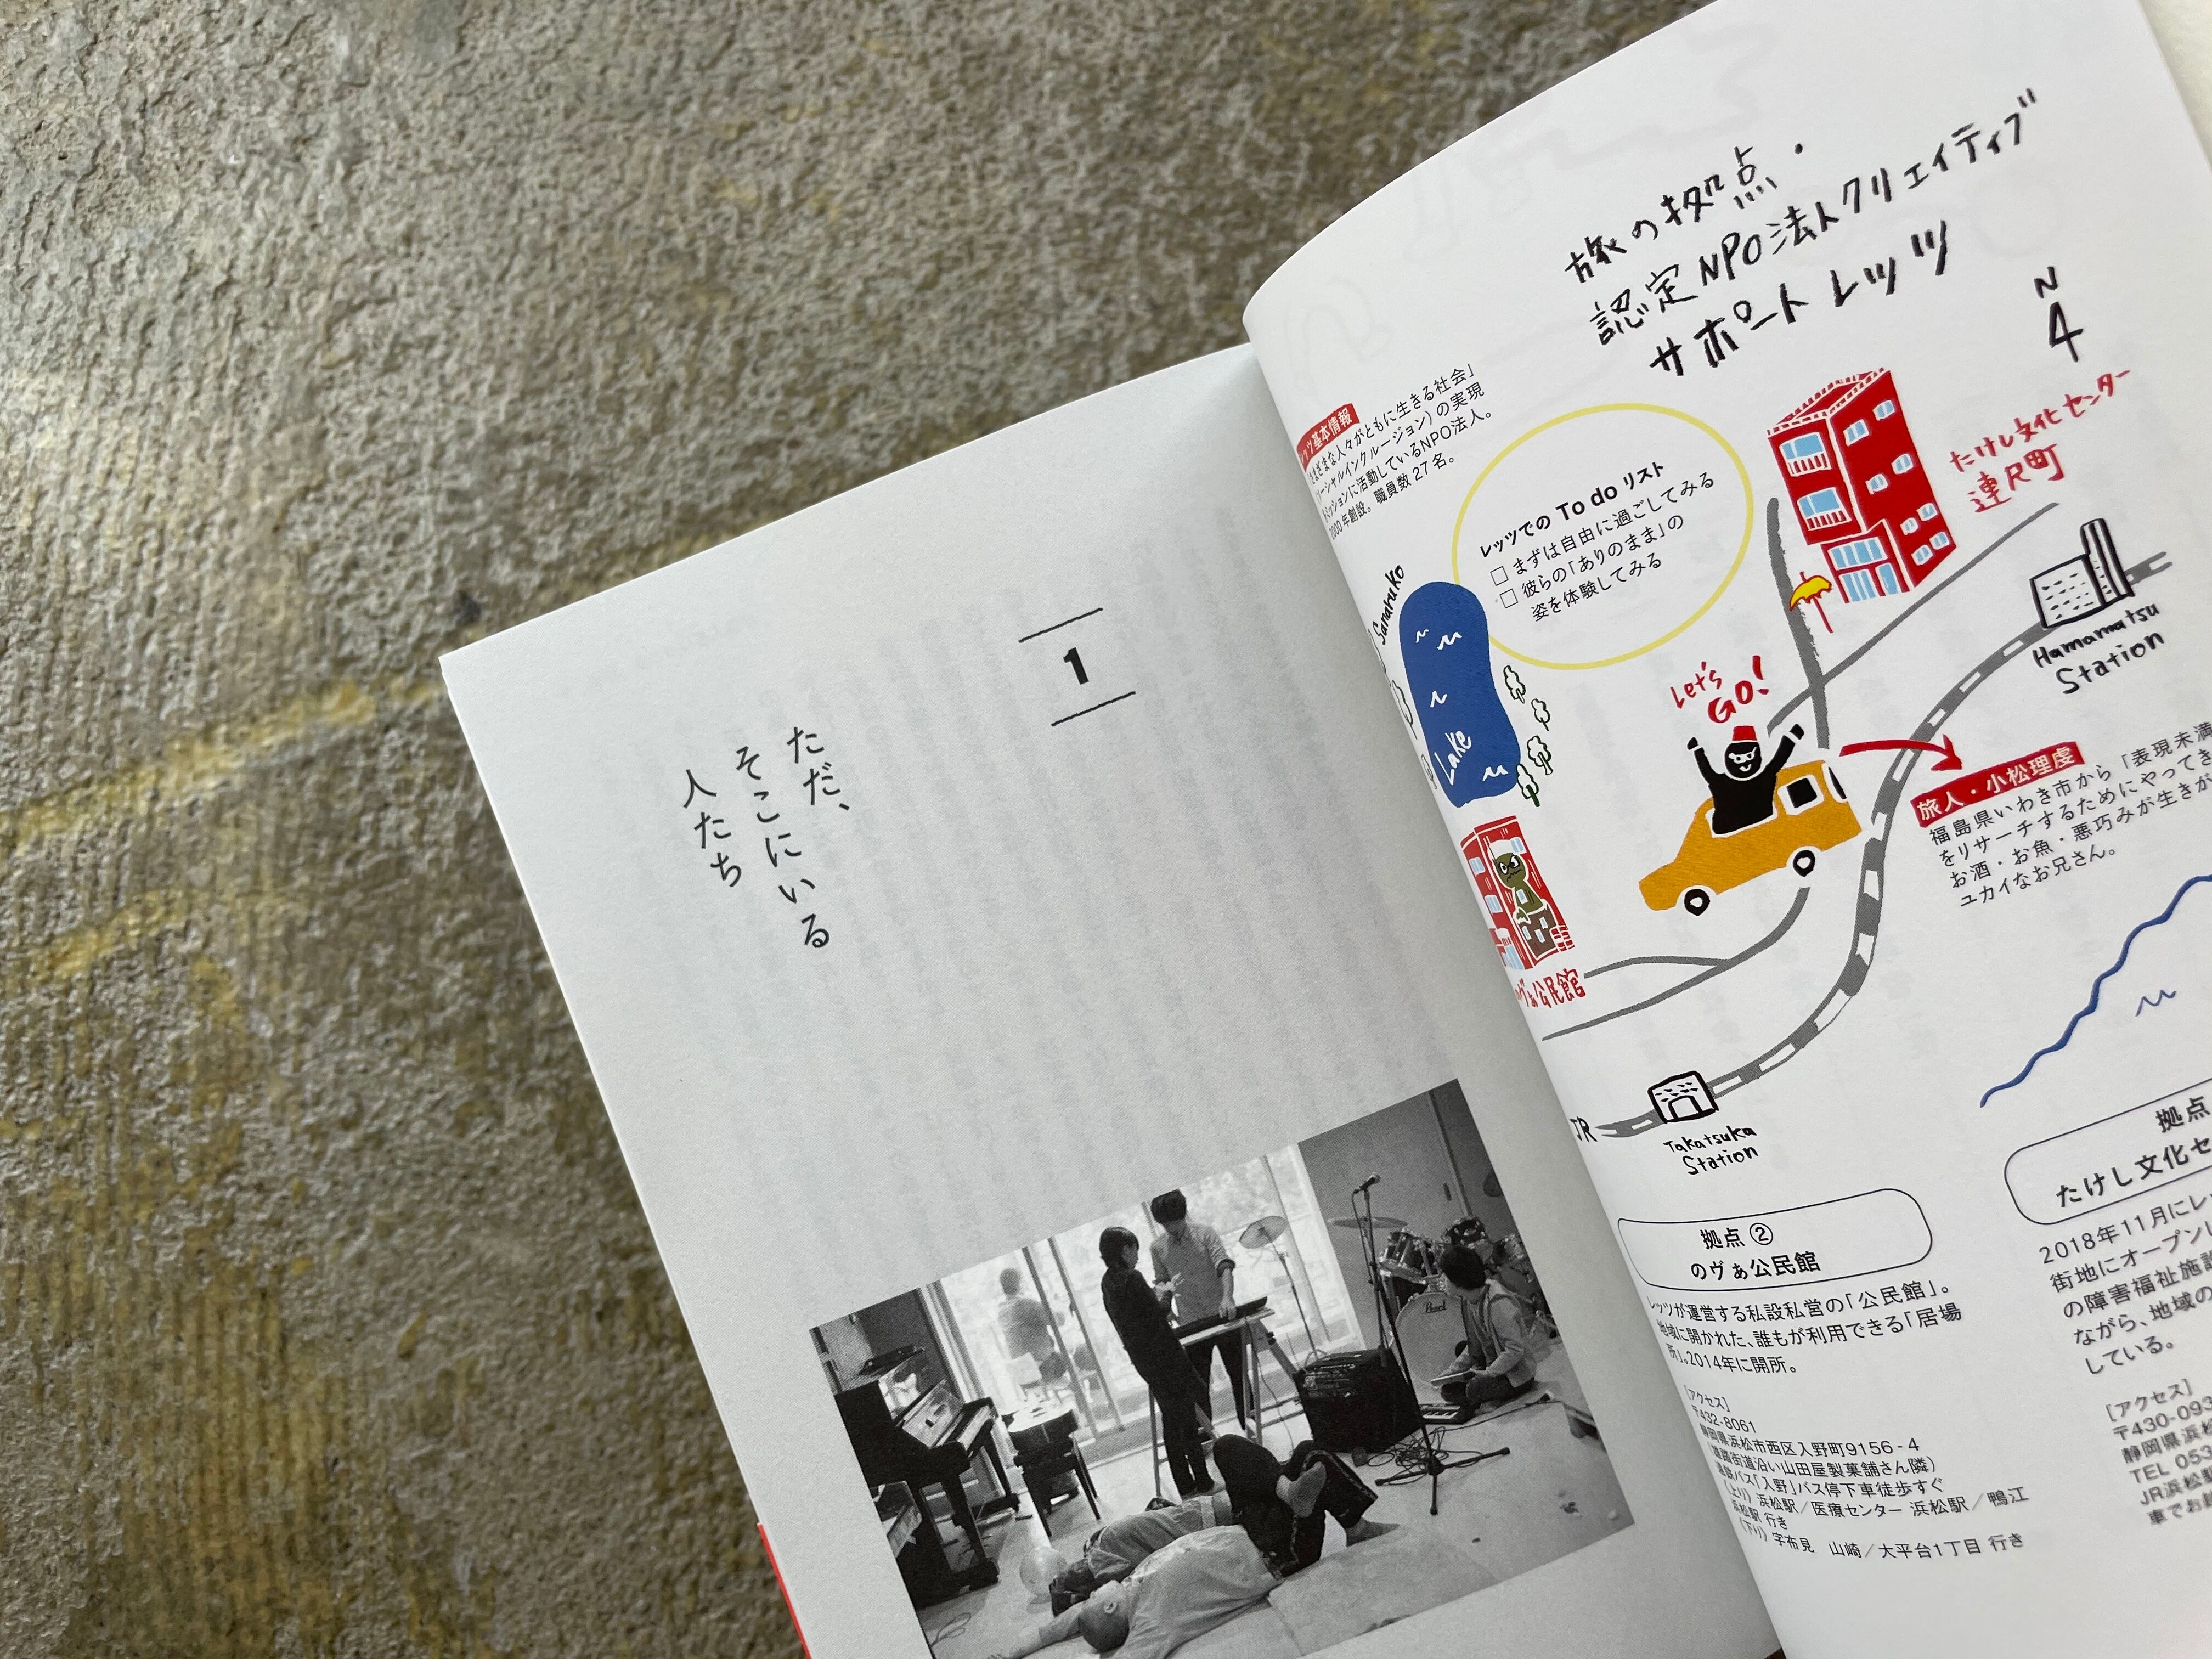 1
ただ、
そこにいる
人たち
Pearl
旅の拠点・
認定NPO法人クリエイティブ
サポートレッツ
N
4
レッツ基本情報
さまざまな人々がともに生きる社会」
ソーシャルインクルージョン）の実現
をミッションに活動しているNPO法人。
2000年創設。職員数27名。
レッツでの To do リスト
□ まずは自由に過ごしてみる
□ 彼らの「ありのまま」の
姿を体験してみる
たけし文化センター
連尺町
Sanaruko
Lake
Hamamatsu
Station
Let's
GO!
旅人・小松理虔
福島県いわき市から「表現未満
をリサーチするためにやってき
お酒・お魚・悪巧みが生きが
ユカイなお兄さん。
のヴぁ公民館
JR
Takatsuka
Station
拠点 ②
のヴぁ公民館
レッツが運営する私設私営の「公民館」。
地域に開かれた、誰もが利用できる「居場
所」。2014年に開所。
［アクセス］
〒432-8061
静岡県浜松市西区入野町9156-4
街道沿い山田屋製菓舗さん隣）
バス「入野」バス停下車徒歩すぐ
（上り）浜松駅／医療センター 浜松駅／鴨江
浜松駅 行き
（下り）宇布見 山崎／大平台1丁目 行き
拠点
たけし文化セ
2018年11月にレッ
街地にオープンし
の障害福祉施設
ながら、地域の
している。
［アクセス］
〒430-093
静岡県浜松
TEL 053
JR浜松駅
車でお